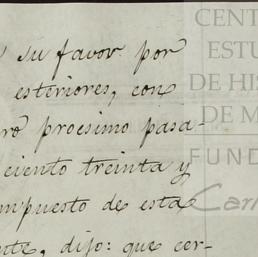 su favor por
esteriores, con
procsimo pasa-
ciento treinta y
mpuesto de esta
nte, dijo: que cer-
CENT
ESTU
DE HIS
DE M
FUND
Car